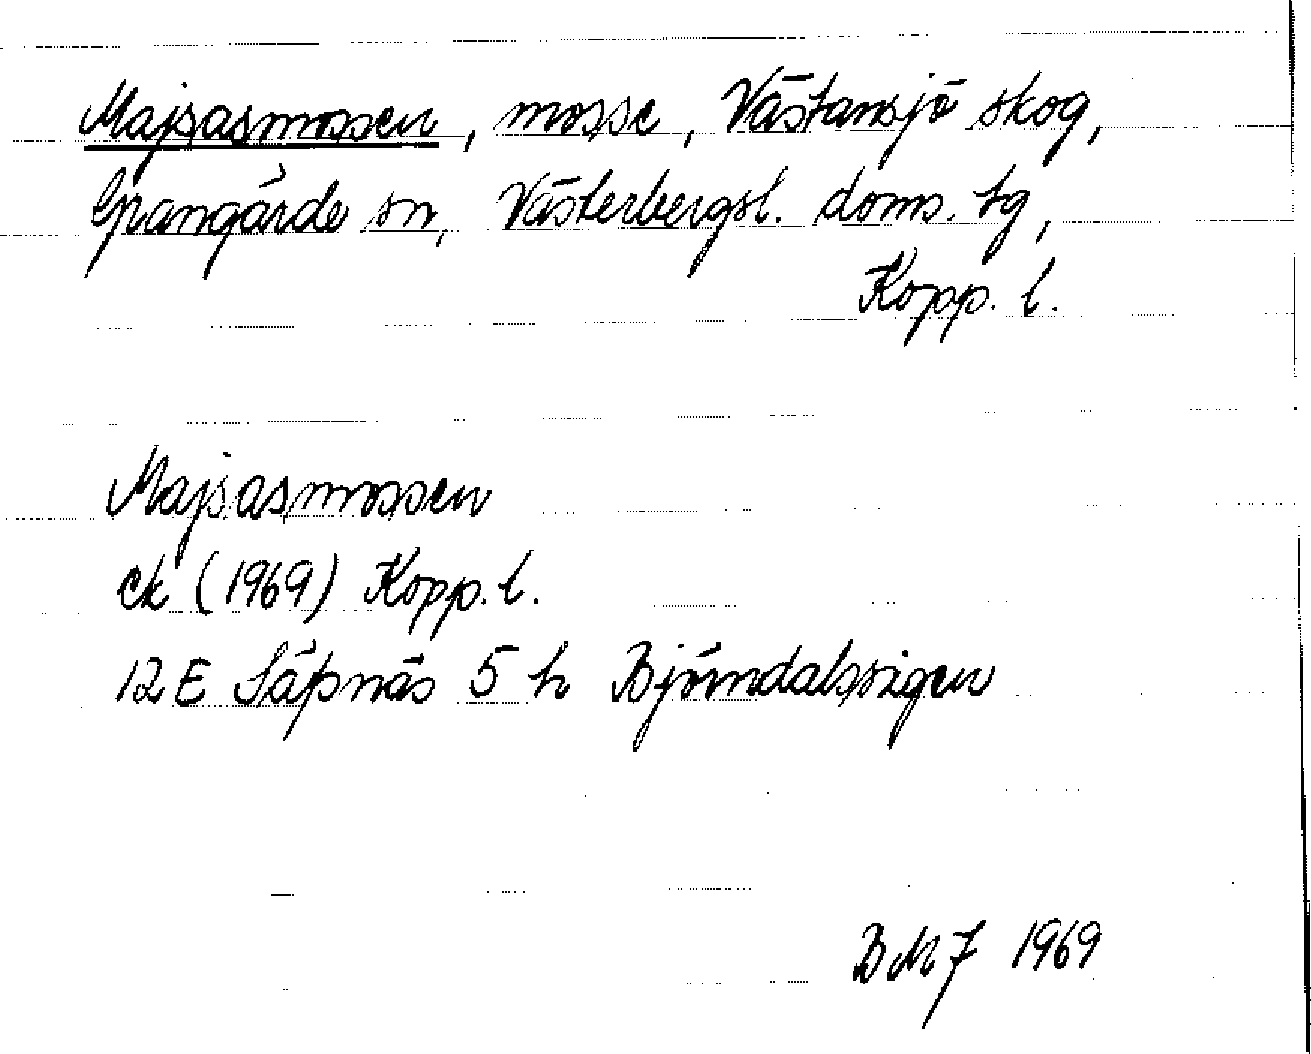 Majsasmossen, mosse, Västansjö skog,
Grangärde sn, Västerbergsl. doms. tg,
Kopp. l.
Majsasmossen
ek (1969) Kopp. l.
12 E Säfsnäs 5 h Björndalssigen
1969